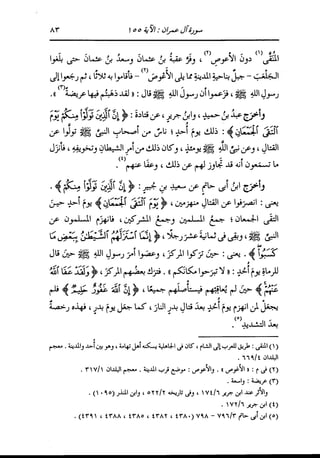 سورة آل عمران : الآية ١٥٥
٨٣
المنقَّى(١) دون الأعوص(٢)، وفرّ عقبة بن عثمان وسعد بن عثمان حتى بلغوا
الجلعب - جبل بناحية المدينة مما يلى الأعوص(٢) - فأقاموا به ثلاثًا، ثم رجعوا إلى
رسول الله ﷺ، فزعموا أن رسول الله ﷺ قال: «لقد ذهبتم فيها عريضة(٣)».
وأخرج عبد بن حميد، وابن جرير، عن قتادة: ﴿إِنَّ الَّذِينَ تَوَلَّوْا مِنكُمْ يَوْمَ
الْتَقَى الْجَمْعَانِ﴾: ذلك يوم أحد؛ ناس من أصحاب النبى ﷺ تولَّوا عن
القتال، وعن نبى الله ﷺ يومئذ، وكان ذلك من أمر الشيطان وتخويفه، فأنزل
الله ما تسمعون أنه قد تجاوز لهم عن ذلك، وعفا عنهم(٤).
وأخرج ابن أبى حاتم عن سعيد بن جبير: ﴿إِنَّ الَّذِينَ تَوَلَّوْا مِنكُمْ﴾.
يعنى: انصرفوا عن القتال منهزمين، ﴿يَوْمَ الْتَقَى الْجَمْعَانِ﴾ يوم أحد حين
التقى الجمعان؛ جمع المسلمين وجمع المشركين، فانهزم المسلمون عن
النبى ﷺ، وبقى فى ثمانية عشر رجلًا، ﴿إِنَّمَا اسْتَزَلَّهُمُ الشَّيْطَانُ بِبَعْضِ مَا
كَسَبُوا﴾. يعنى: حين تركوا المركز، وعصوا أمر رسول الله ﷺ حين قال
للرماة يوم أحد: «لا تبرحوا مكانكم». فترك بعضهم المركز، ﴿وَلَقَدْ عَفَا اللَّهُ
عَنْهُمْ﴾ حين لم يعاقبهم فيستأصلهم جميعًا، ﴿إِنَّ اللَّهَ غَفُورٌ حَلِيمٌ﴾ فلم
يجعل لمن انهزم يوم أحد بعد قتال بدر النار، كما جعل يوم بدر، فهذه رخصة
بعد التشديد(٥).
(١) المنقى: طريق للعرب إلى الشام، كان فى الجاهلية يسكنه أهل تهامة، وهو بين أحد والمدينة. معجم
البلدان ٤/ ٦٦٩.
(٢) فى م: «الأغوص». والأعوص: موضع قرب المدينة. معجم البلدان ١/ ٣١٧.
(٣) عريضة: واسعة.
والأثر عند ابن جرير ٦/ ١٧٤، وفى تاريخه ٢/ ٥٢٢، وابن المنذر (١٠٩٥).
(٤) ابن جرير ٦/ ١٧٢.
(٥) ابن أبى حاتم ٣/ ٧٩٦ - ٧٩٨ (٤٣٨٠، ٤٣٨٢، ٤٣٨٥، ٤٣٨٨، ٤٣٩١).